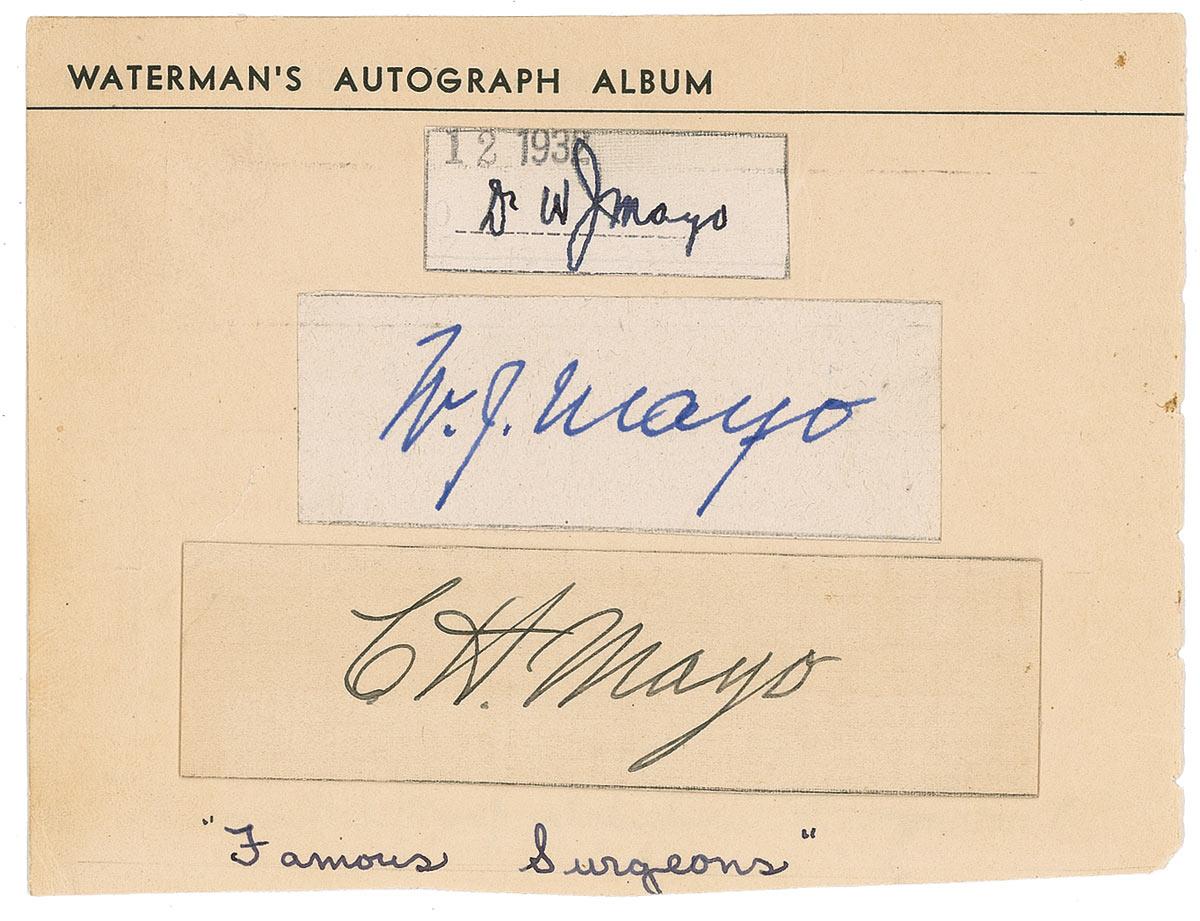 WATERMAN'S AUTOGRAPH ALBUM
12 1932
Dr WJ Mayo
W. J. Mayo
C H. Mayo
"Famous Surgeons"